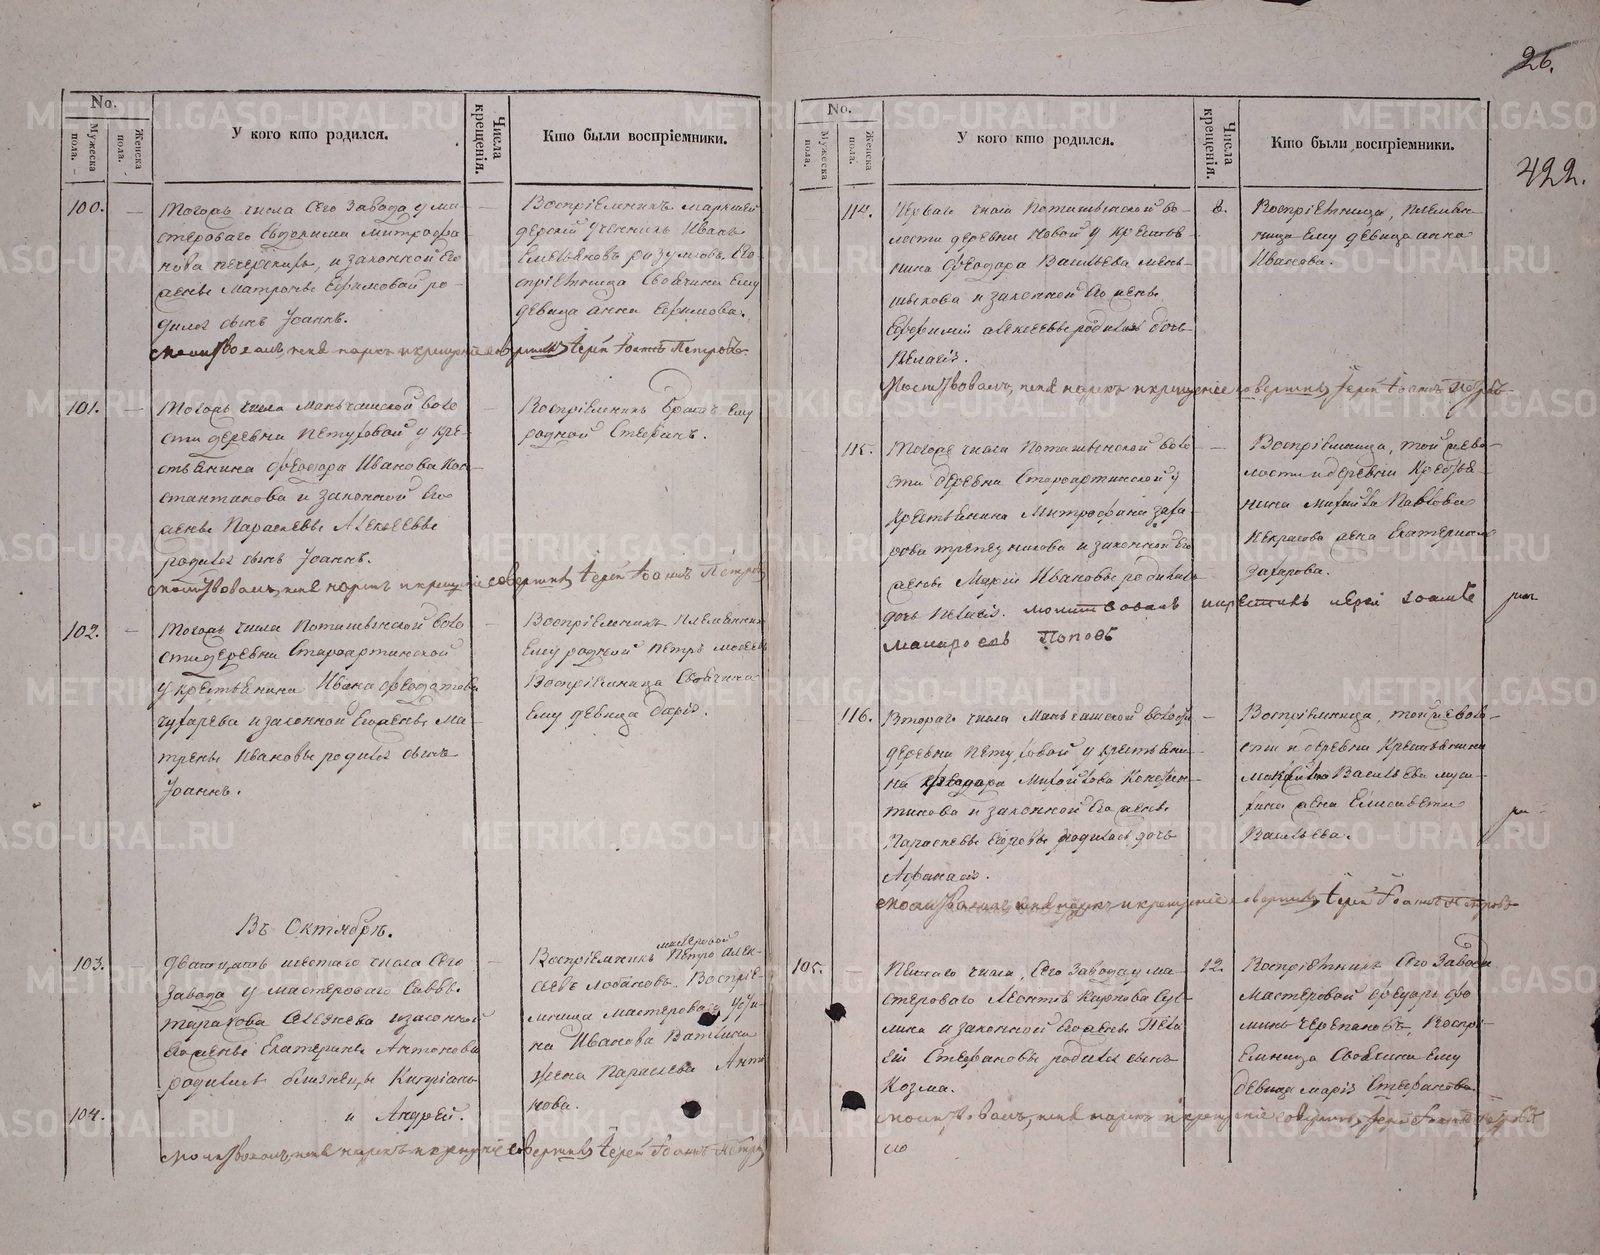 26.
422.
No.
Мужеска пола.
Женска пола.
У кого кто родился.
Числа крещенія.
Кто были воспріемники.
100.
Тогожъ числа Сего Завода у ма-
стероваго Евдокима Митрофа-
нова и законной Его
женѣ Матронѣ Ефимовой ро-
дился сынъ Іоаннъ.
Воспріемникъ
ученикъ Иванъ
Емельяновъ Разумовъ. Во-
спріемница Своячина Ему
девица Анна Ефимова.
молитвовалъ, имя нарекъ и крещеніе совершилъ Іерей Іоаннъ Петровъ
101.
Тогожъ числа Манчажской воло-
сти деревни Петуховой у кре-
стьянина Феодора Иванова Кон-
стантинова и законной Его
женѣ Параскевѣ Алексеевѣ
родился сынъ Іоаннъ.
Воспріемникъ братъ ему
родной Стефанъ.
молитвовалъ, имя нарекъ и крещеніе совершилъ Іерей Іоаннъ Петровъ
102.
Тогожъ числа Поташинской воло
сти деревни Староартинской
у крестьянина Ивана
и законной Его женѣ Ма-
тренѣ Ивановѣ родился сынъ
Іоаннъ.
Воспріемникъ племянникъ
Ему родной Петръ
Воспріемница Своячина
Ему девица Дарія.
Въ Октябрѣ.
103.
Двадцать шестаго числа Сего
Завода у мастероваго Саввы
Тарасова и законной
Его женѣ Екатеринѣ Антоновой
родились близнецы Кипріанъ
104.
и Андрей.
мастеровой
Воспріемникъ Петръ Алек-
сеевъ Лобановъ. Воспріе-
мница мастероваго
на Иванова
жена Параскева Анто
нова.
молитвовалъ, имя нарекъ и крещеніе совершилъ Іерей Іоаннъ Петровъ
No.
Мужеска пола.
Женска пола.
У кого кто родился.
Числа крещенія.
Кто были воспріемники.
114.
Перваго числа Поташинской во-
лости деревни Новой у крестья-
нина Феодора Васильева Мень-
шикова и законной Его женѣ
Евфиміи Алексеевѣ родилась дочь
Пелагія.
8.
Воспріемница, племян-
ница Ему девица Анна
Иванова.
молитвовалъ, имя нарекъ и крещеніе совершилъ Іерей Іоаннъ Петровъ
115.
Тогоже числа Поташинской воло
сти деревни Староартинской у
крестьянина Митрофана Заха-
рова Трапезникова и законной Его
женѣ Маріи Ивановѣ родилась
дочь Пелагія. молитвовалъ и крестилъ Іерей Іоаннъ
Макаровъ Поповъ
Воспріемница, той же во-
лости и деревни крестья-
нина Михайла Павлова
Некрасова жена Екатерина
Захарова.
116.
Втораго числа Манчажской волости
деревни Петуховой у крестьяни
на Феодора Михайлова Констан-
тинова и законной Его женѣ
Параскевѣ Егоровѣ родилась дочь
Афанасія.
Воспріемница, той же воло-
сти и деревни крестьянина
Васильева
жена Елисавета
Васильева.
молитвовалъ имя нарекъ и крещеніе совершилъ Іерей Іоаннъ Петровъ
105.
числа, Сего Завода у ма-
стероваго Леонтія Карпова
и законной Его женѣ Пела
гіи Стефановѣ родился сынъ
Козма.
12.
Воспріемникъ Сего Завода
Мастеровой Федоръ Фо
минъ Черепановъ, Воспрі-
емница Своячина Ему
девица Марія Стефанова.
молитвовалъ, имя нарекъ и крещеніе совершилъ Іерей Іоаннъ Петровъ
METRIKI.GASO-URAL.RU